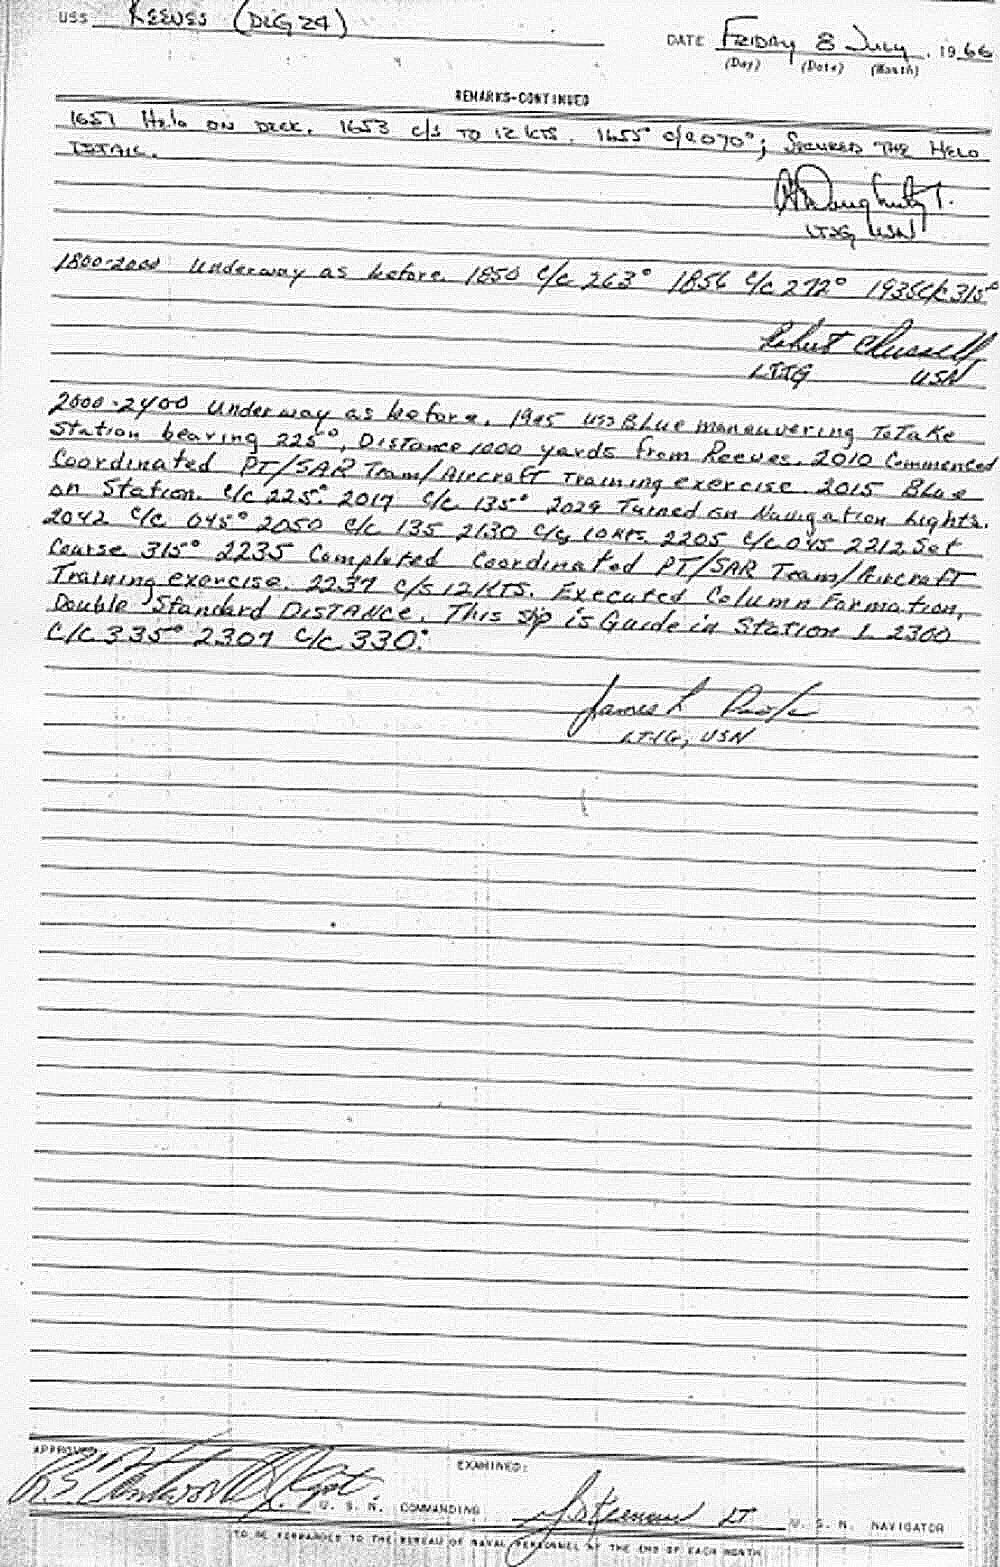 USS REEVES (DLG 24)
DATE FRIDAY 8 JULY, 1966
(Day) (Date) (Month)
REMARKS-CONTINUED
1651 Helo ON DECK. 1653 c/s TO 12 KTS. 1655 c/c 070°; SECURED THE HELO
DETAIL.
LTJG USN
1800-2000 Underway as before. 1850 c/c 263° 1856 c/c 272° 1935 c/c 315°
Robert C Russell
LTJG USN
2000-2400 Underway as before. 1945 USS Blue maneuvering To Take
Station bearing 225°, Distance 1000 yards from Reeves. 2010 Commenced
Coordinated PT/SAR Team/Aircraft Training exercise. 2015 Blue
on Station. c/c 225° 2017 c/c 135° 2029 Turned on Navigation Lights.
2042 c/c 045° 2050 c/c 135 2130 c/s 10 KTS. 2205 c/c 045 2212 Set
Course 315° 2235 Completed Coordinated PT/SAR Team/Aircraft
Training exercise. 2237 c/s 12 KTS. Executed Column Formation,
Double Standard DISTANCE. This ship is Guide in Station 1 2300
C/C 335° 2307 c/c 330°.
James L
LTJG, USN
APPROVED
EXAMINED:
U. S. N. COMMANDING
LT U. S. N. NAVIGATOR
TO BE FORWARDED TO THE BUREAU OF NAVAL PERSONNEL AT THE END OF EACH MONTH